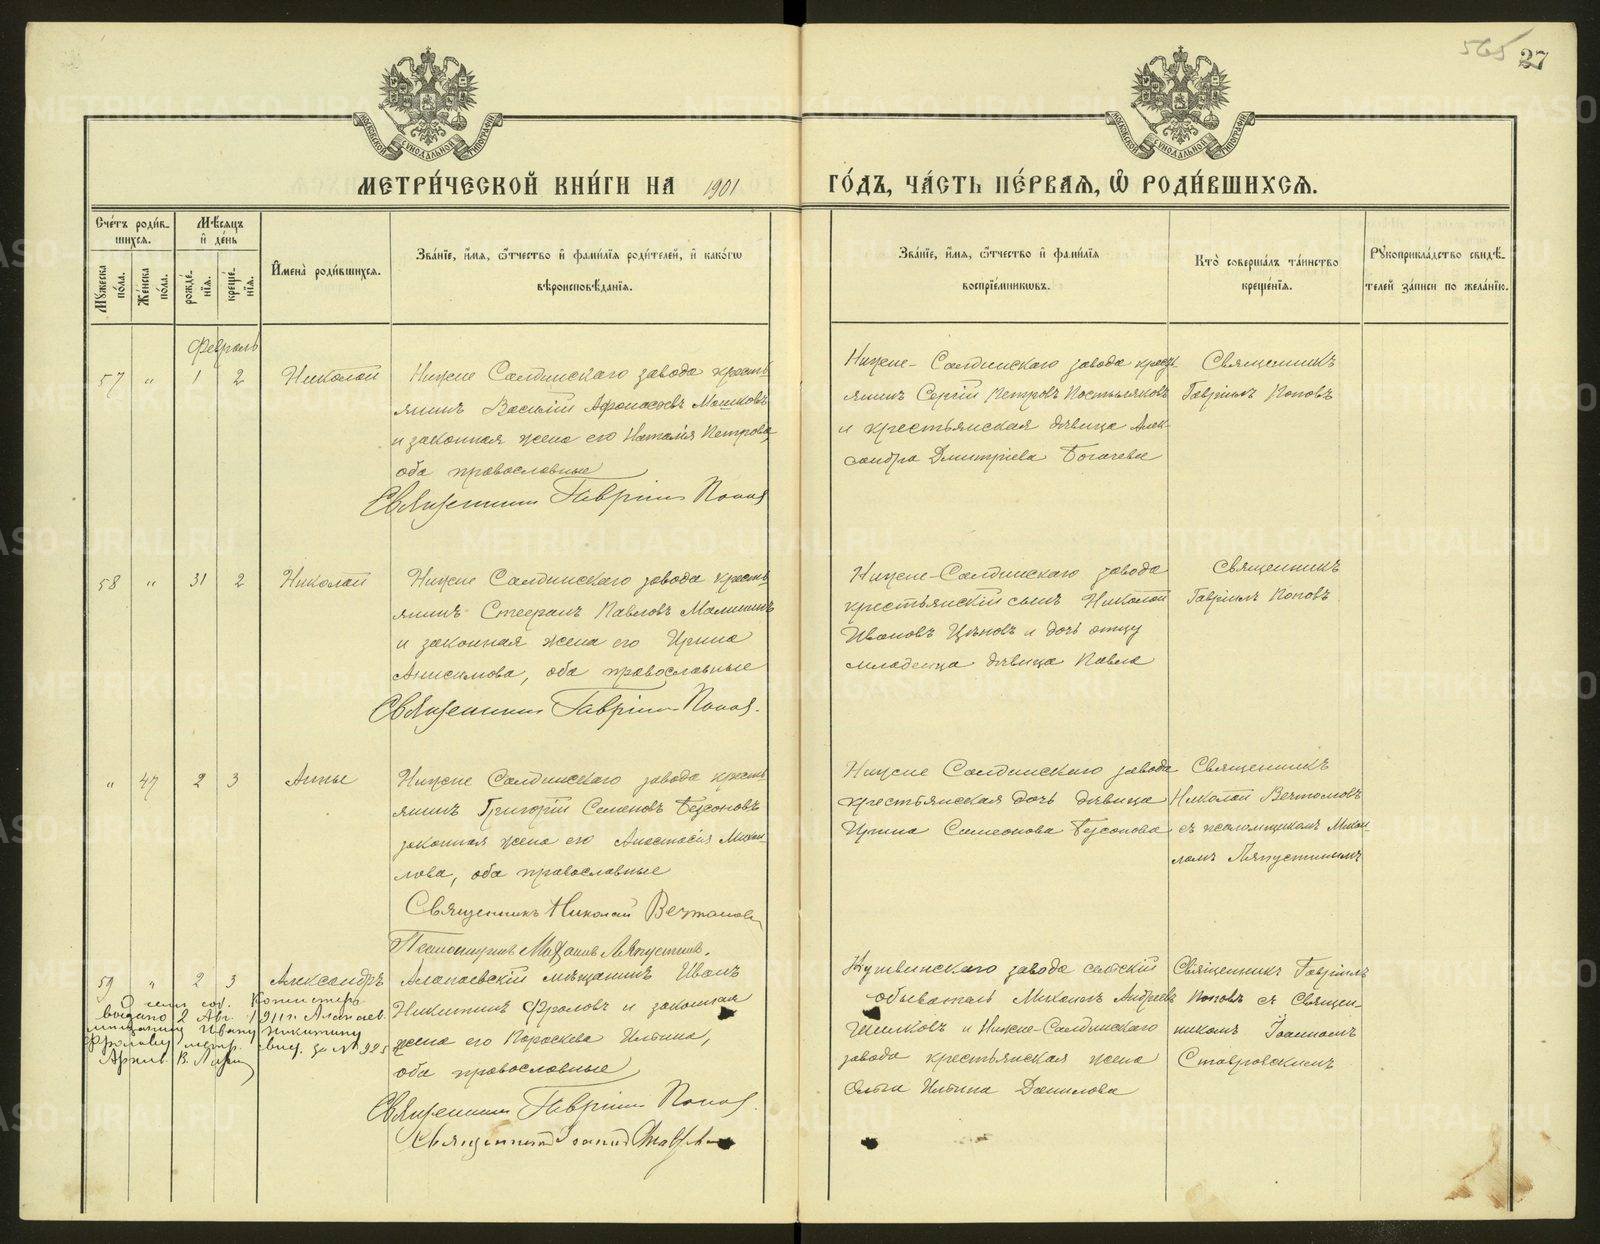 565 27
МОСКОВСКОЙ СѴНОДАЛЬНОЙ ТИПОГРАФІИ
МОСКОВСКОЙ СѴНОДАЛЬНОЙ ТИПОГРАФІИ
МЕТРИ́ЧЕСКОЙ КНИ́ГИ НА 1901 ГО́ДЪ, ЧА́СТЬ ПЕ́РВАЯ, Ѡ РОДИ́ВШИХСЯ.
Сче́тъ роди́в-
шихся.
Мѣ́сяцъ
и҆ де́нь
Мꙋ́жеска по́ла.
Же́нска по́ла.
рожде́нїя.
креще́нїя.
И҆мена̀ роди́вшихся.
Зва́нїе, и҆́мя, ѻ҆́тчество и҆ фами́лїя роди́телей, и҆ како́гѡ
вѣроисповѣ́данїя.
Зва́нїе, и҆́мя, ѻ҆́тчество и҆ фами́лїя
воспрїе́мникѡвъ.
Кто̀ соверша́лъ та́инство
креще́нїя.
Рꙋкоприкла́дство свидѣ́-
телей за́писи по жела́нїю.
Февраль
57 " 1 2 Николай
Нижне Салдинскаго завода кресть-
янинъ Василій Афонасьевъ Машковъ
и законная жена его Наталія Петрова,
оба православные
Священникъ Гавріилъ Поповъ
Нижне-Салдинскаго завода кресть-
янинъ Сергій Петровъ Постыляковъ
и крестьянская дѣвица Алек-
сандра Димитріева Богачева
Священникъ
Гавріилъ Поповъ
58 " 31 2 Николай
Нижне Салдинскаго завода кресть-
янинъ Стефанъ Павловъ Малининъ
и законная жена его Ирина
Анисимова, оба православные
Священникъ Гавріилъ Поповъ.
Нижне-Салдинскаго завода
крестьянскій сынъ Николай
Ивановъ Цѣповъ и дочь отцу
младенца дѣвица Павла
Священникъ
Гавріилъ Поповъ
" 47 2 3 Анны
Нижне Салдинскаго завода кресть-
янинъ Григорій Семеновъ Безсоновъ
законная жена его Анастасія Михаи-
лова, оба православные
Священникъ Николай Вечтомовъ
Псаломщикъ Михаилъ Ляпустинъ.
Нижне Салдинскаго завода
крестьянская дочь дѣвица
Ирина Симеонова Безсонова
Священникъ
Николай Вечтомовъ
съ псаломщикомъ Михаи-
ломъ Ляпустинымъ
59 " 2 3 Александръ
Алапаевскій мѣщанинъ Иванъ
Никитинъ Фроловъ и законная
жена его Параскева Ильина,
оба православные
Священникъ Гавріилъ Поповъ.
Священникъ Іоаннъ
О семъ
выдано 2 Авг. 1911 г. Алапаев.
мѣщанину Ивану Никитину
Фролову метр. свид. за № 925
Кушвинскаго завода сельскій
обыватель Михаилъ Андреевъ
Шилковъ и Нижне-Салдинскаго
завода крестьянская жена
Ольга Ильина Данилова
Священникъ Гавріилъ
Поповъ съ Священ-
никомъ Іоанномъ
Ставровскимъ
METRIKI.GASO-URAL.RU